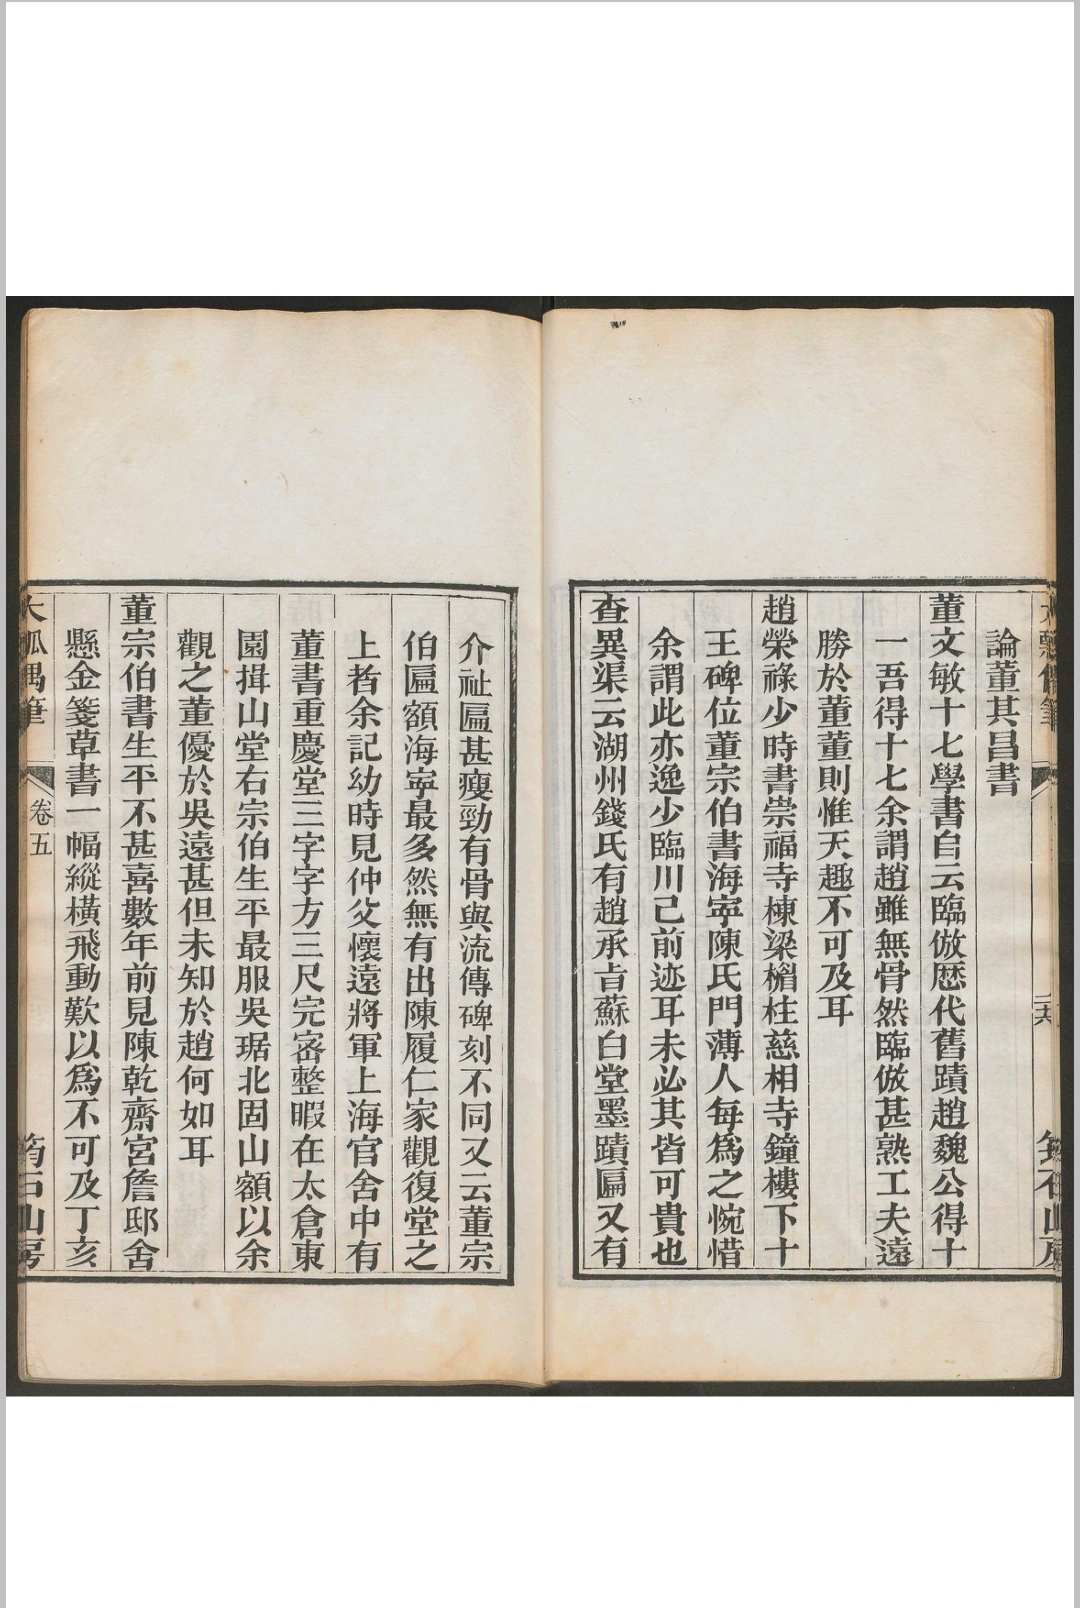 論董其昌書
董文敏十七學書自云臨倣歷代舊蹟趙魏公得十
一吾得十七余謂趙雖無骨然臨倣甚熟工夫遠
勝於董董則惟天趣不可及耳
趙榮祿少時書崇福寺棟梁楣柱慈相寺鐘樓下十
王碑位董宗伯書海寧陳氏門薄人每爲之惋惜
余謂此亦逸少臨川己前迹耳未必其皆可貴也
査異渠云湖州錢氏有趙承旨蘇白堂墨蹟匾又有
介祉匾甚瘦勁有骨與流傳碑刻不同又云董宗
伯匾額海寧最多然無有出陳履仁家觀復堂之
上者余記幼時見仲父懷遠將軍上海官舍中有
董書重慶堂三字字方三尺完密整暇在太倉東
園揖山堂右宗伯生平最服吳琚北固山額以余
觀之董優於吳遠甚但未知於趙何如耳
董宗伯書生平不甚喜數年前見陳乾齋宮詹邸舍
懸金箋草書一幅縱橫飛動歎以爲不可及丁亥
大瓢偶筆
卷五
筠石山房